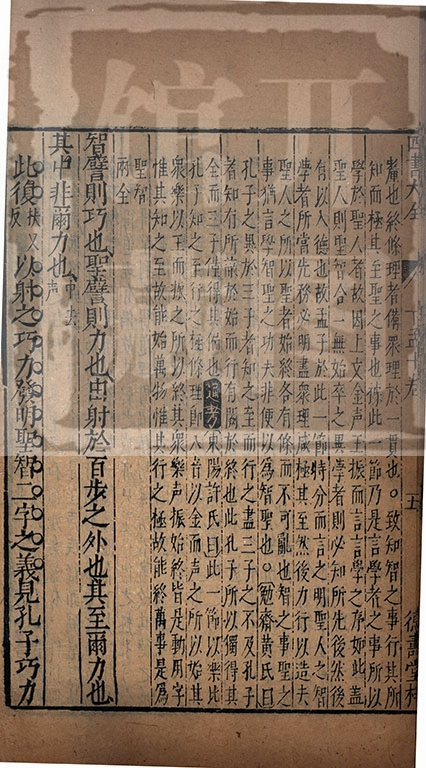 四書大全
五
德壽堂梓
釐也終條理者備衆理於一貫也○致知智之事行其所
知而極其至聖之事也此一節乃是言學者之事所以
學於聖人者故因上文金声玉振而言言學之序如此蓋
聖人則聖智合一無始卒之異學者則必知所先後然後
有以入德也故孟子於此一節特分而言之明聖人之智
學者所當先務必明盡衆理底極其至然後力行以造夫
聖人之所以聖者始終各有條而不可亂也智之事聖之
事猶言學智聖之功夫非便以為智聖也○勉齋黃氏曰
孔子之異於三子者知之至而行之盡三子之不及孔子
者知有所蔽於始而行有闕於終也此孔子所以獨得其
全而三子僅得其偏也通考東陽許氏曰此一節以樂比
孔子知之至行之極條理節入首以金而声之所以始其
衆樂以玉而振之所以終其衆樂声振始終皆是動用字
惟其知之至故能始萬物惟其行之極故能終萬事是為
聖智
兩全
智譬則巧也聖譬則力也由射於百步之外也其至爾力也
其中非爾力也中去声
此復扶又反以射之巧力發明聖智二字之義見孔子巧力